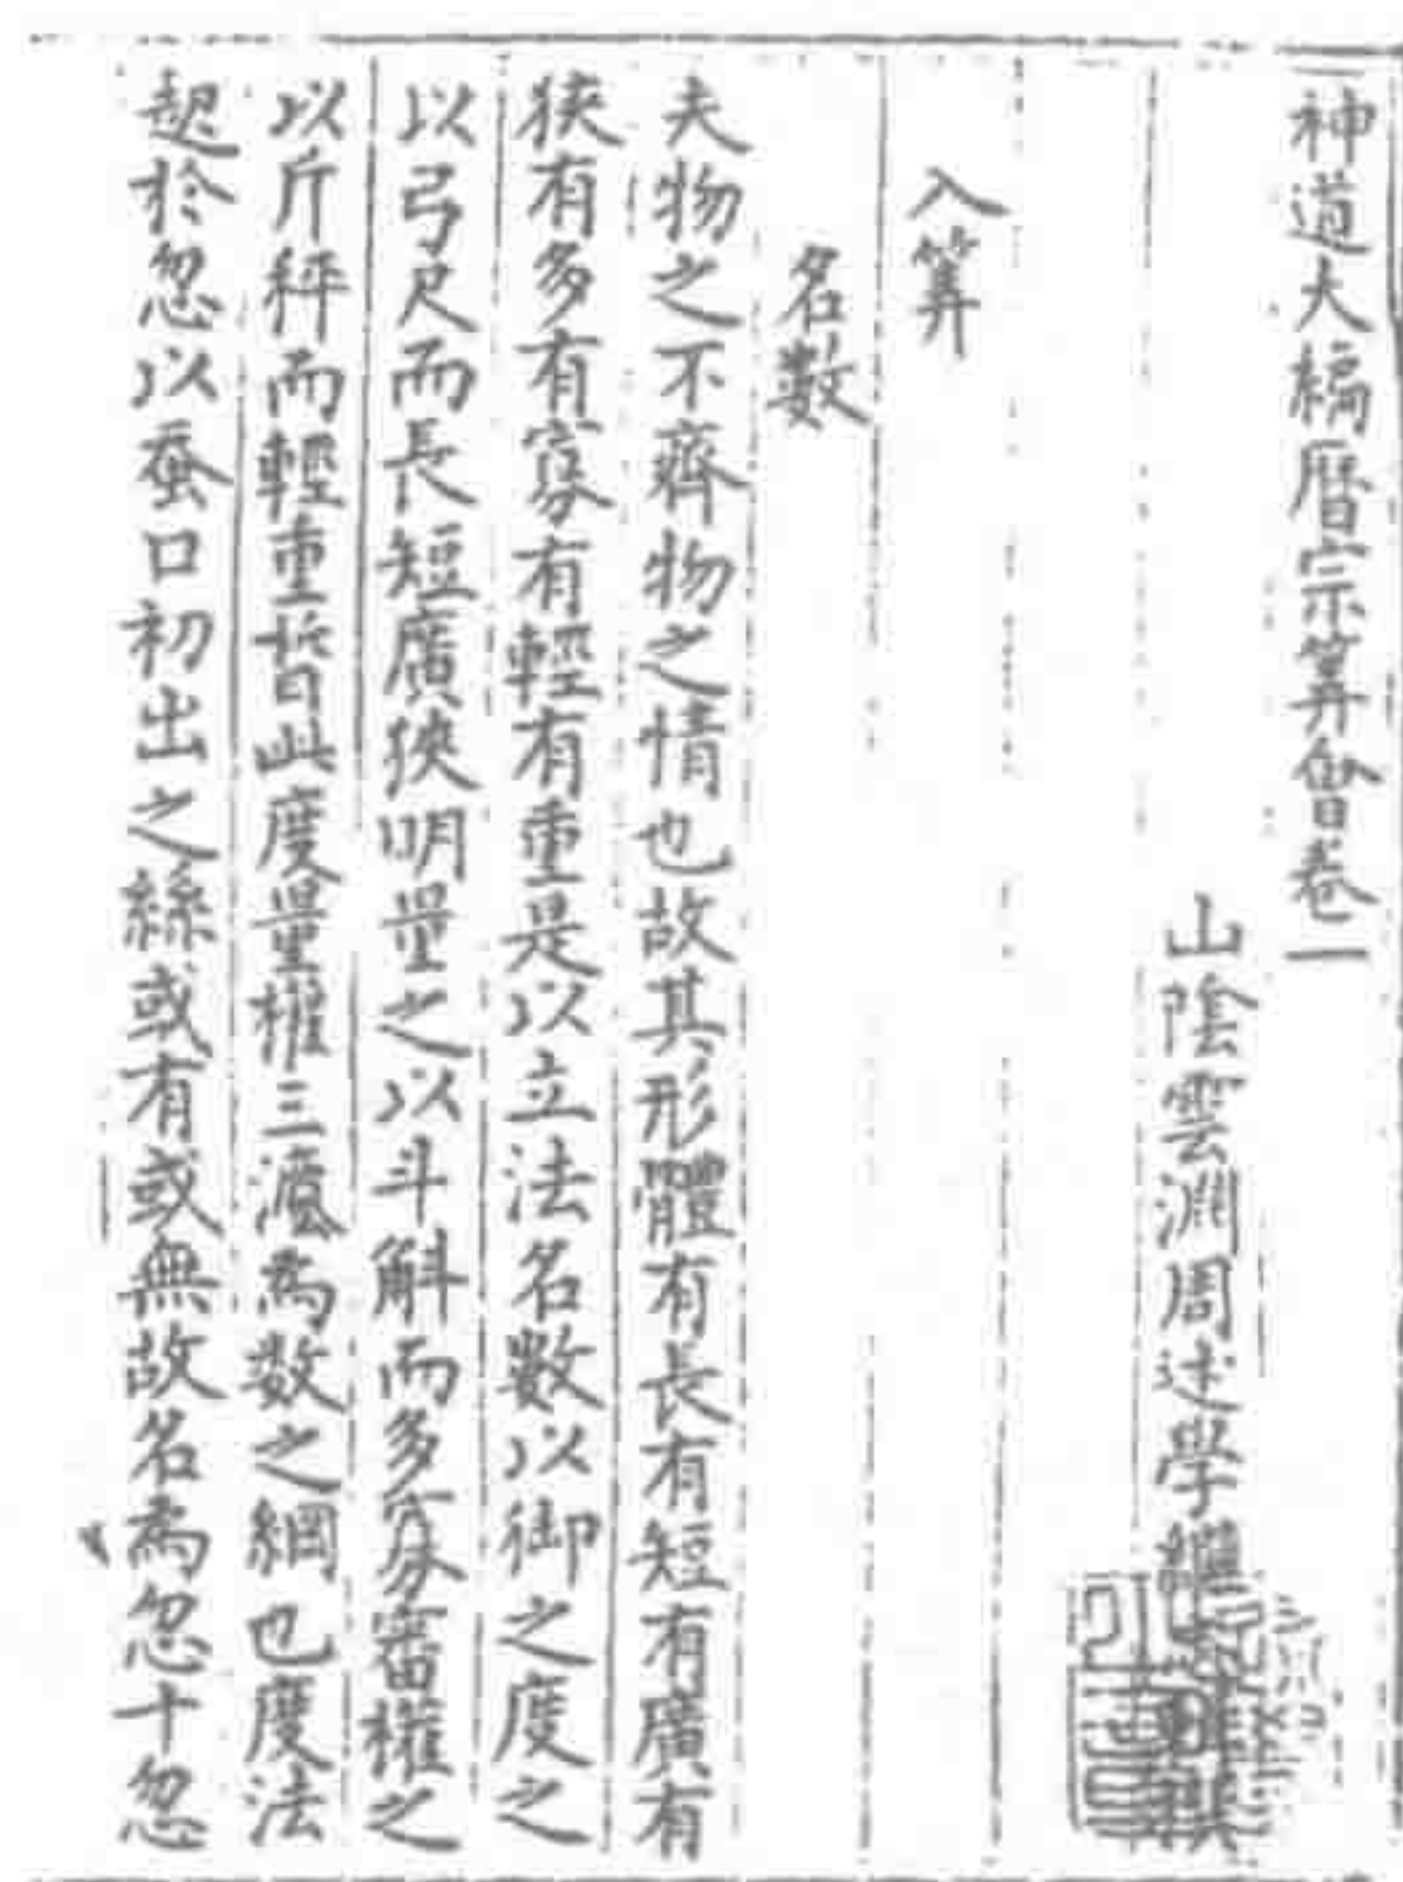 神道大編曆宗筭會卷一
山陰雲淵周述學繼志撰
入筭
名數
夫物之不齊物之情也故其形體有長有短有廣有
狹有多有寡有輕有重是以立法名數以御之度之
以弓尺而長短廣狹明量之以斗斛而多寡審權之
以斤秤而輕重晢此度量權三灋為數之綱也度法
起於忽以蚕口初出之絲或有或無故名為忽十忽